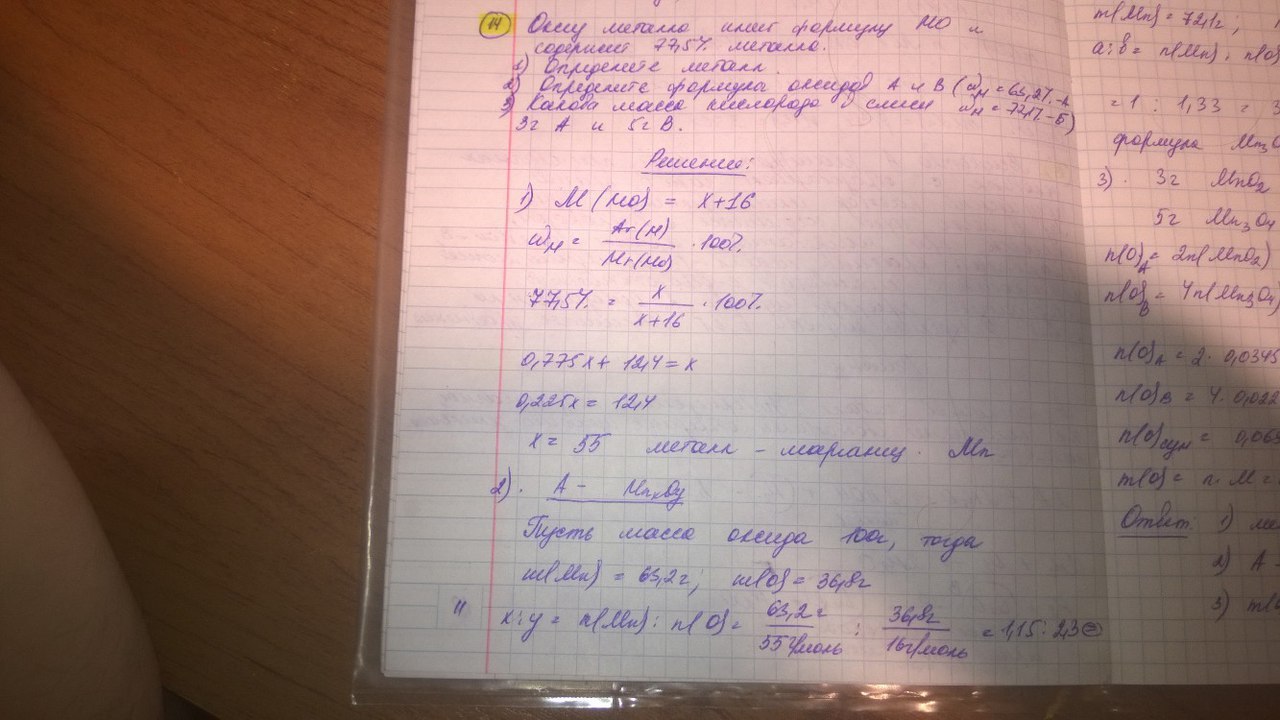 14 Оксид металла имеет формулу МО и
содержит 77,5% металла.
1) Определите металл.
2) Определите формулы оксидов А и В (ωм = 63,2% -А
ωм = 72,1% -Б)
3) Какова масса кислорода в смеси
3г А и 5г В.
Решение:
1) М(МО) = х+16
ωм = Ar(М) / Mr(МО) · 100%
77,5% = х / х+16 · 100%
0,775х + 12,4 = х
0,225х = 12,4
х = 55 металл – марганец. Mn
2). А – MnxOy
Пусть масса оксида 100г, тогда
m(Mn) = 63,2г; m(O) = 36,8г
11
х:у = n(Mn) : n(O) = 63,2г / 55г/моль : 36,8г / 16г/моль = 1,15 : 2,3 =
m(Mn) = 72,1г;
а:в = n(Mn) : n(O)
= 1 : 1,33 = 3
формула Mn3O
3). 3г MnO2
5г Mn3O4
n(O)A = 2n(MnO2)
n(O)B = 4n(Mn3O4)
n(O)A = 2 · 0,0345
n(O)B = 4 · 0,022
n(O)сум = 0,069
m(O) = n · M =
Ответ: 1) ме
2) А –
3) m(